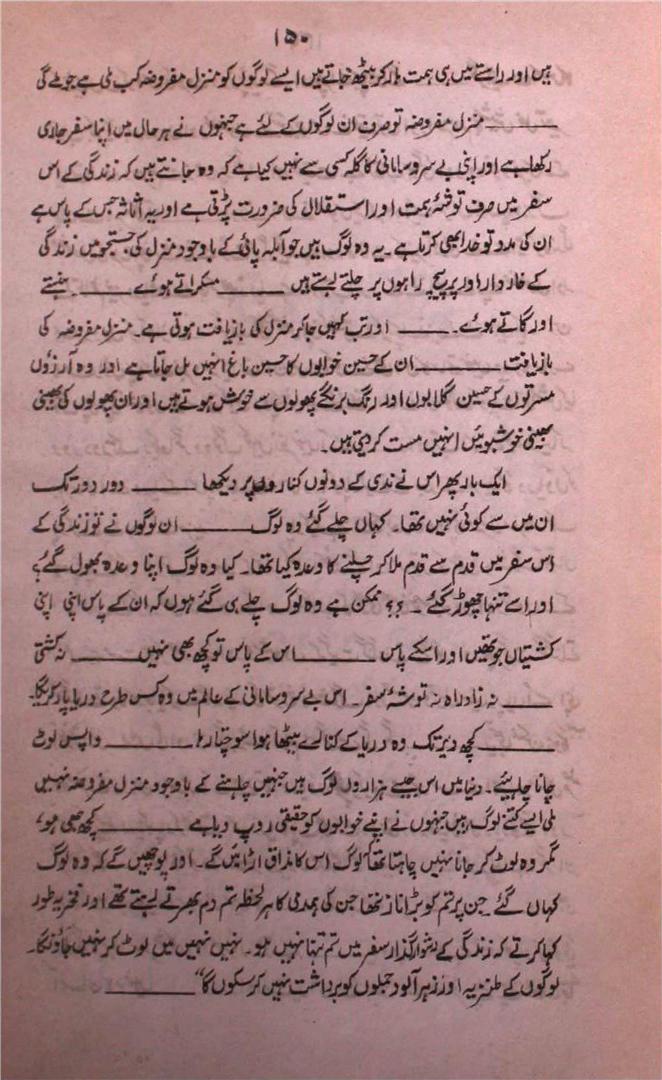 ۱۵۰
ہیں اور راستے میں ہی ہمت ہار کر بیٹھ جاتے ہیں ایسے لوگوں کو منزل مفروضہ کب ملی ہے جو ملے گی
ــــــــ منزل مفروضہ تو صرف ان لوگوں کے لئے ہے جنہوں نے ہر حال میں اپنا سفر جاری
رکھا ہے اور اپنی بے سرو سامانی کا گلہ کسی سے نہیں کیا ہے کہ وہ جانتے ہیں کہ زندگی کے اس
سفر میں صرف توشۂ ہمت اور استقلال کی ضرورت پڑتی ہے اور یہ اثاثہ جس کے پاس ہے
ان کی مدد تو خدا بھی کرتا ہے۔ یہ وہ لوگ ہیں جو آبلہ پائی کے باوجود منزل کی جستجو میں زندگی
کے خاردار اور پر پیچ راہوں پر چلتے رہتے ہیں ــــــــ مسکراتے ہوئے ــــــــ ہنستے
اور گاتے ہوئے۔ ــــــــ اور تب کہیں جا کر منزل کی بازیافت ہوتی ہے۔ منزل مفروضہ کی
بازیافت ــــــــ ان کے حسین خوابوں کا حسین باغ انہیں مل جاتا ہے اور وہ آرزوں
مسرتوں کے حسین گلابوں اور رنگ برنگے پھولوں سے خوش ہوتے ہیں اور ان پھولوں کی بھینی
بھینی خوشبوئیں انہیں مست کر دیتی ہیں۔
ایک بار پھر اس نے ندی کے دونوں کناروں پر دیکھا ــــــــ دور دور تک
ان میں سے کوئی نہیں تھا۔ کہاں چلے گئے وہ لوگ ــــــــ ان لوگوں نے تو زندگی کے
اس سفر میں قدم سے قدم ملا کر چلنے کا وعدہ کیا تھا۔ کیا وہ لوگ اپنا وعدہ بھول گئے؟
اور اسے تنہا چھوڑ گئے۔ ؟؟ ممکن ہے وہ لوگ چلے ہی گئے ہوں کہ ان کے پاس اپنی اپنی
کشتیاں جو تھیں اور اسکے پاس ــــــــ اس کے پاس تو کچھ بھی نہیں ــــــــ نہ کشتی
ــــــــ نہ زاد راہ نہ توشۂ سفر۔ اس بے سرو سامانی کے عالم میں وہ کس طرح دریا پار کریگا۔
ــــــــ کچھ دیر تک وہ دریا کے کنارے بیٹھا ہوا سوچتا رہا۔ ــــــــ واپس لوٹ
جانا چاہیئے۔ دنیا میں اس جیسے ہزاروں لوگ ہیں جنہیں چاہنے کے باوجود منزل مفروضہ نہیں
ملی ایسے کتنے لوگ ہیں جنہوں نے اپنے خوابوں کو حقیقی روپ دیا ہے ــــــــ کچھ بھی ہو،
مگر وہ لوٹ کر جانا نہیں چاہتا تھا لوگ اس کا مذاق اڑائیں گے۔ اور پوچھیں گے کہ وہ لوگ
کہاں گئے۔ جن پر تم کو بڑا ناز تھا جن کی ہمدمی کا ہر لحظہ تم دم بھرتے رہتے تھے اور فخریہ طور
کہا کرتے کہ زندگی کے دشوار گذار سفر میں تم تنہا نہیں ہو۔ نہیں نہیں میں لوٹ کر نہیں جاؤنگا۔
لوگوں کے طنزیہ اور زہر آلود جملوں کو برداشت نہیں کر سکوں گا“ ــــــــ